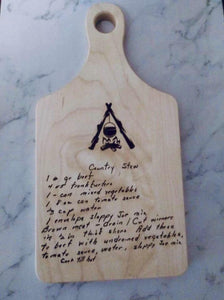 Country Stew
1 # gr beef
4 oz frankfurters
1 - can mixed vegetables
1 8 oz can tomato sauce
1/2 cup water
1 envelope sloppy Joe mix
Brown meat - Drain / Cut wieners
in 1/2 in thick share Add these
to beef with undrained vegetables,
tomato sauce, water, sloppy Joe mix
Cook till hot